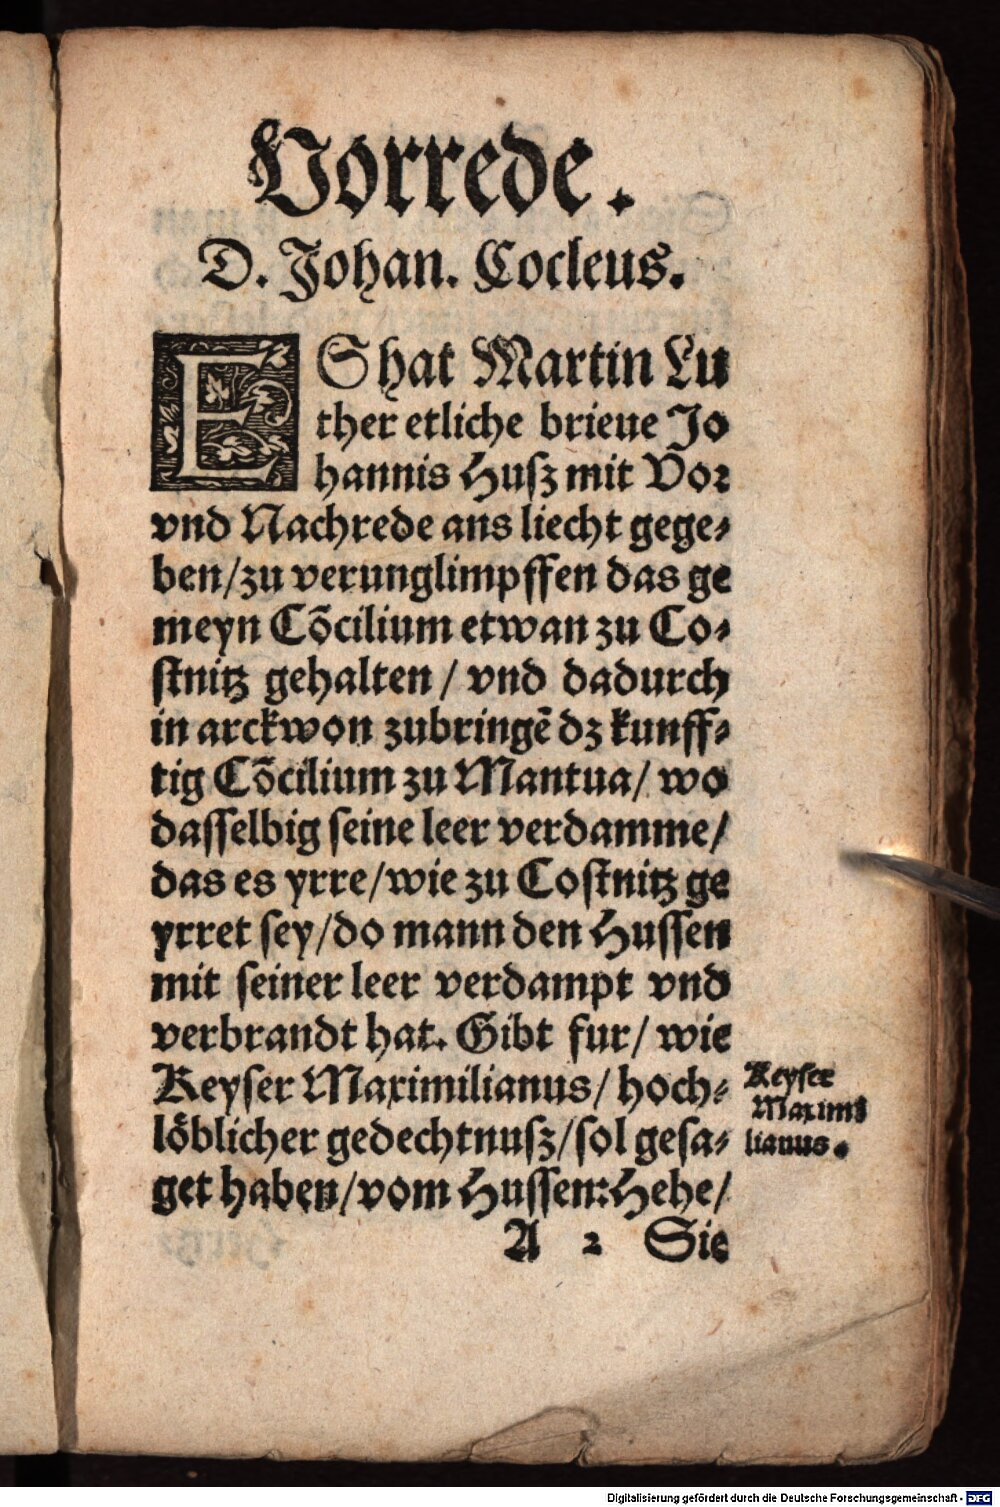 Vorrede.
D. Johan. Cocleus.
ES hat Martin Lu
ther etliche brieue Jo
hannis Husz mit Vor
vnd Nachrede ans liecht gege⸗
ben/zu verunglimpffen das ge
meyn Cõcilium etwan zu Co⸗
stnitz gehalten / vnd dadurch
in arckwon zubringẽ dz kunff⸗
tig Cõcilium zu Mantua/ wo
dasselbig seine leer verdamme/
das es yrre/wie zu Costnitz ge
yrret sey/do mann den Hussen
mit seiner leer verdampt vnd
verbrandt hat. Gibt fur/ wie
Keyser Maximilianus/ hoch⸗
löblicher gedechtnusz/sol gesa⸗
get haben/vom Hussen:Hehe/
Keyser
Maximi
lianus.
A 2 Sie
Digitalisierung gefördert durch die Deutsche Forschungsgemeinschaft - DFG